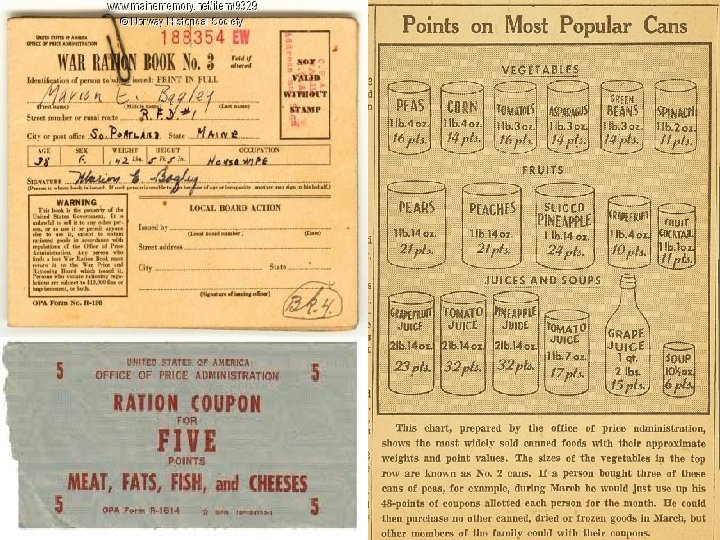 www.mainememory.net/item/9329
© Norway Historical Society
188354 EW
UNITED STATES OF AMERICA
OFFICE OF PRICE ADMINISTRATION
WAR RATION BOOK No. 3
Void if
altered
NOT
VALID
WITHOUT
STAMP
Identification of person to whom issued: PRINT IN FULL
Marion E. Bagley
(First name) (Middle name) (Last name)
Street number or rural route R.F.D #1
City or post office So. Portland State MAINE
AGE SEX WEIGHT HEIGHT OCCUPATION
38 F. 142 Lbs. 5 Ft. 5 In. HOUSEWIFE
SIGNATURE Marion E. Bagley
(Person to whom book is issued. If such person is unable to sign because of age or incapacity, another may sign in his behalf.)
WARNING
This book is the property of the
United States Government. It is
unlawful to sell it to any other per-
son, or to use it or permit anyone
else to use it, except to obtain
rationed goods in accordance with
regulations of the Office of Price
Administration. Any person who
finds a lost War Ration Book must
return it to the War Price and
Rationing Board which issued it.
Persons who violate rationing regu-
lations are subject to $10,000 fine or
imprisonment, or both.
OPA Form No. R-130
LOCAL BOARD ACTION
Issued by
(Local board number) (Date)
Street address
City State
(Signature of issuing officer)
Bk. 4.
5 UNITED STATES OF AMERICA 5
OFFICE OF PRICE ADMINISTRATION
RATION COUPON
FOR
FIVE
POINTS
MEAT, FATS, FISH, and CHEESES
5 OPA Form R-1614 5
Points on Most Popular Cans
VEGETABLES
PEAS
1 lb. 4 oz.
16 pts.
CORN
1 lb. 4 oz.
14 pts.
TOMATOES
1 lb. 3 oz.
16 pts.
ASPARAGUS
1 lb. 3 oz.
14 pts.
GREEN
BEANS
1 lb. 3 oz.
14 pts.
SPINACH
1 lb. 2 oz.
11 pts.
FRUITS
PEARS
1 lb. 14 oz.
21 pts.
PEACHES
1 lb. 14 oz.
21 pts.
SLICED
PINEAPPLE
1 lb. 14 oz.
24 pts.
GRAPEFRUIT
1 lb. 4 oz.
10 pts.
FRUIT
COCKTAIL
1 lb. 1 oz.
11 pts.
JUICES AND SOUPS
GRAPEFRUIT
JUICE
2 lb. 14 oz.
23 pts.
TOMATO
JUICE
2 lb. 14 oz.
32 pts.
PINEAPPLE
JUICE
2 lb. 14 oz.
32 pts.
TOMATO
JUICE
1 lb. 7 oz.
17 pts.
GRAPE
JUICE
1 qt.
2 lbs.
15 pts.
SOUP
10½ oz.
6 pts.
This chart, prepared by the office of price administration,
shows the most widely sold canned foods with their approximate
weights and point values. The sizes of the vegetables in the top
row are known as No. 2 cans. If a person bought three of these
cans of peas, for example, during March he would just use up his
48-points of coupons allotted each person for the month. He could
then purchase no other canned, dried or frozen goods in March, but
other members of the family could with their coupons.